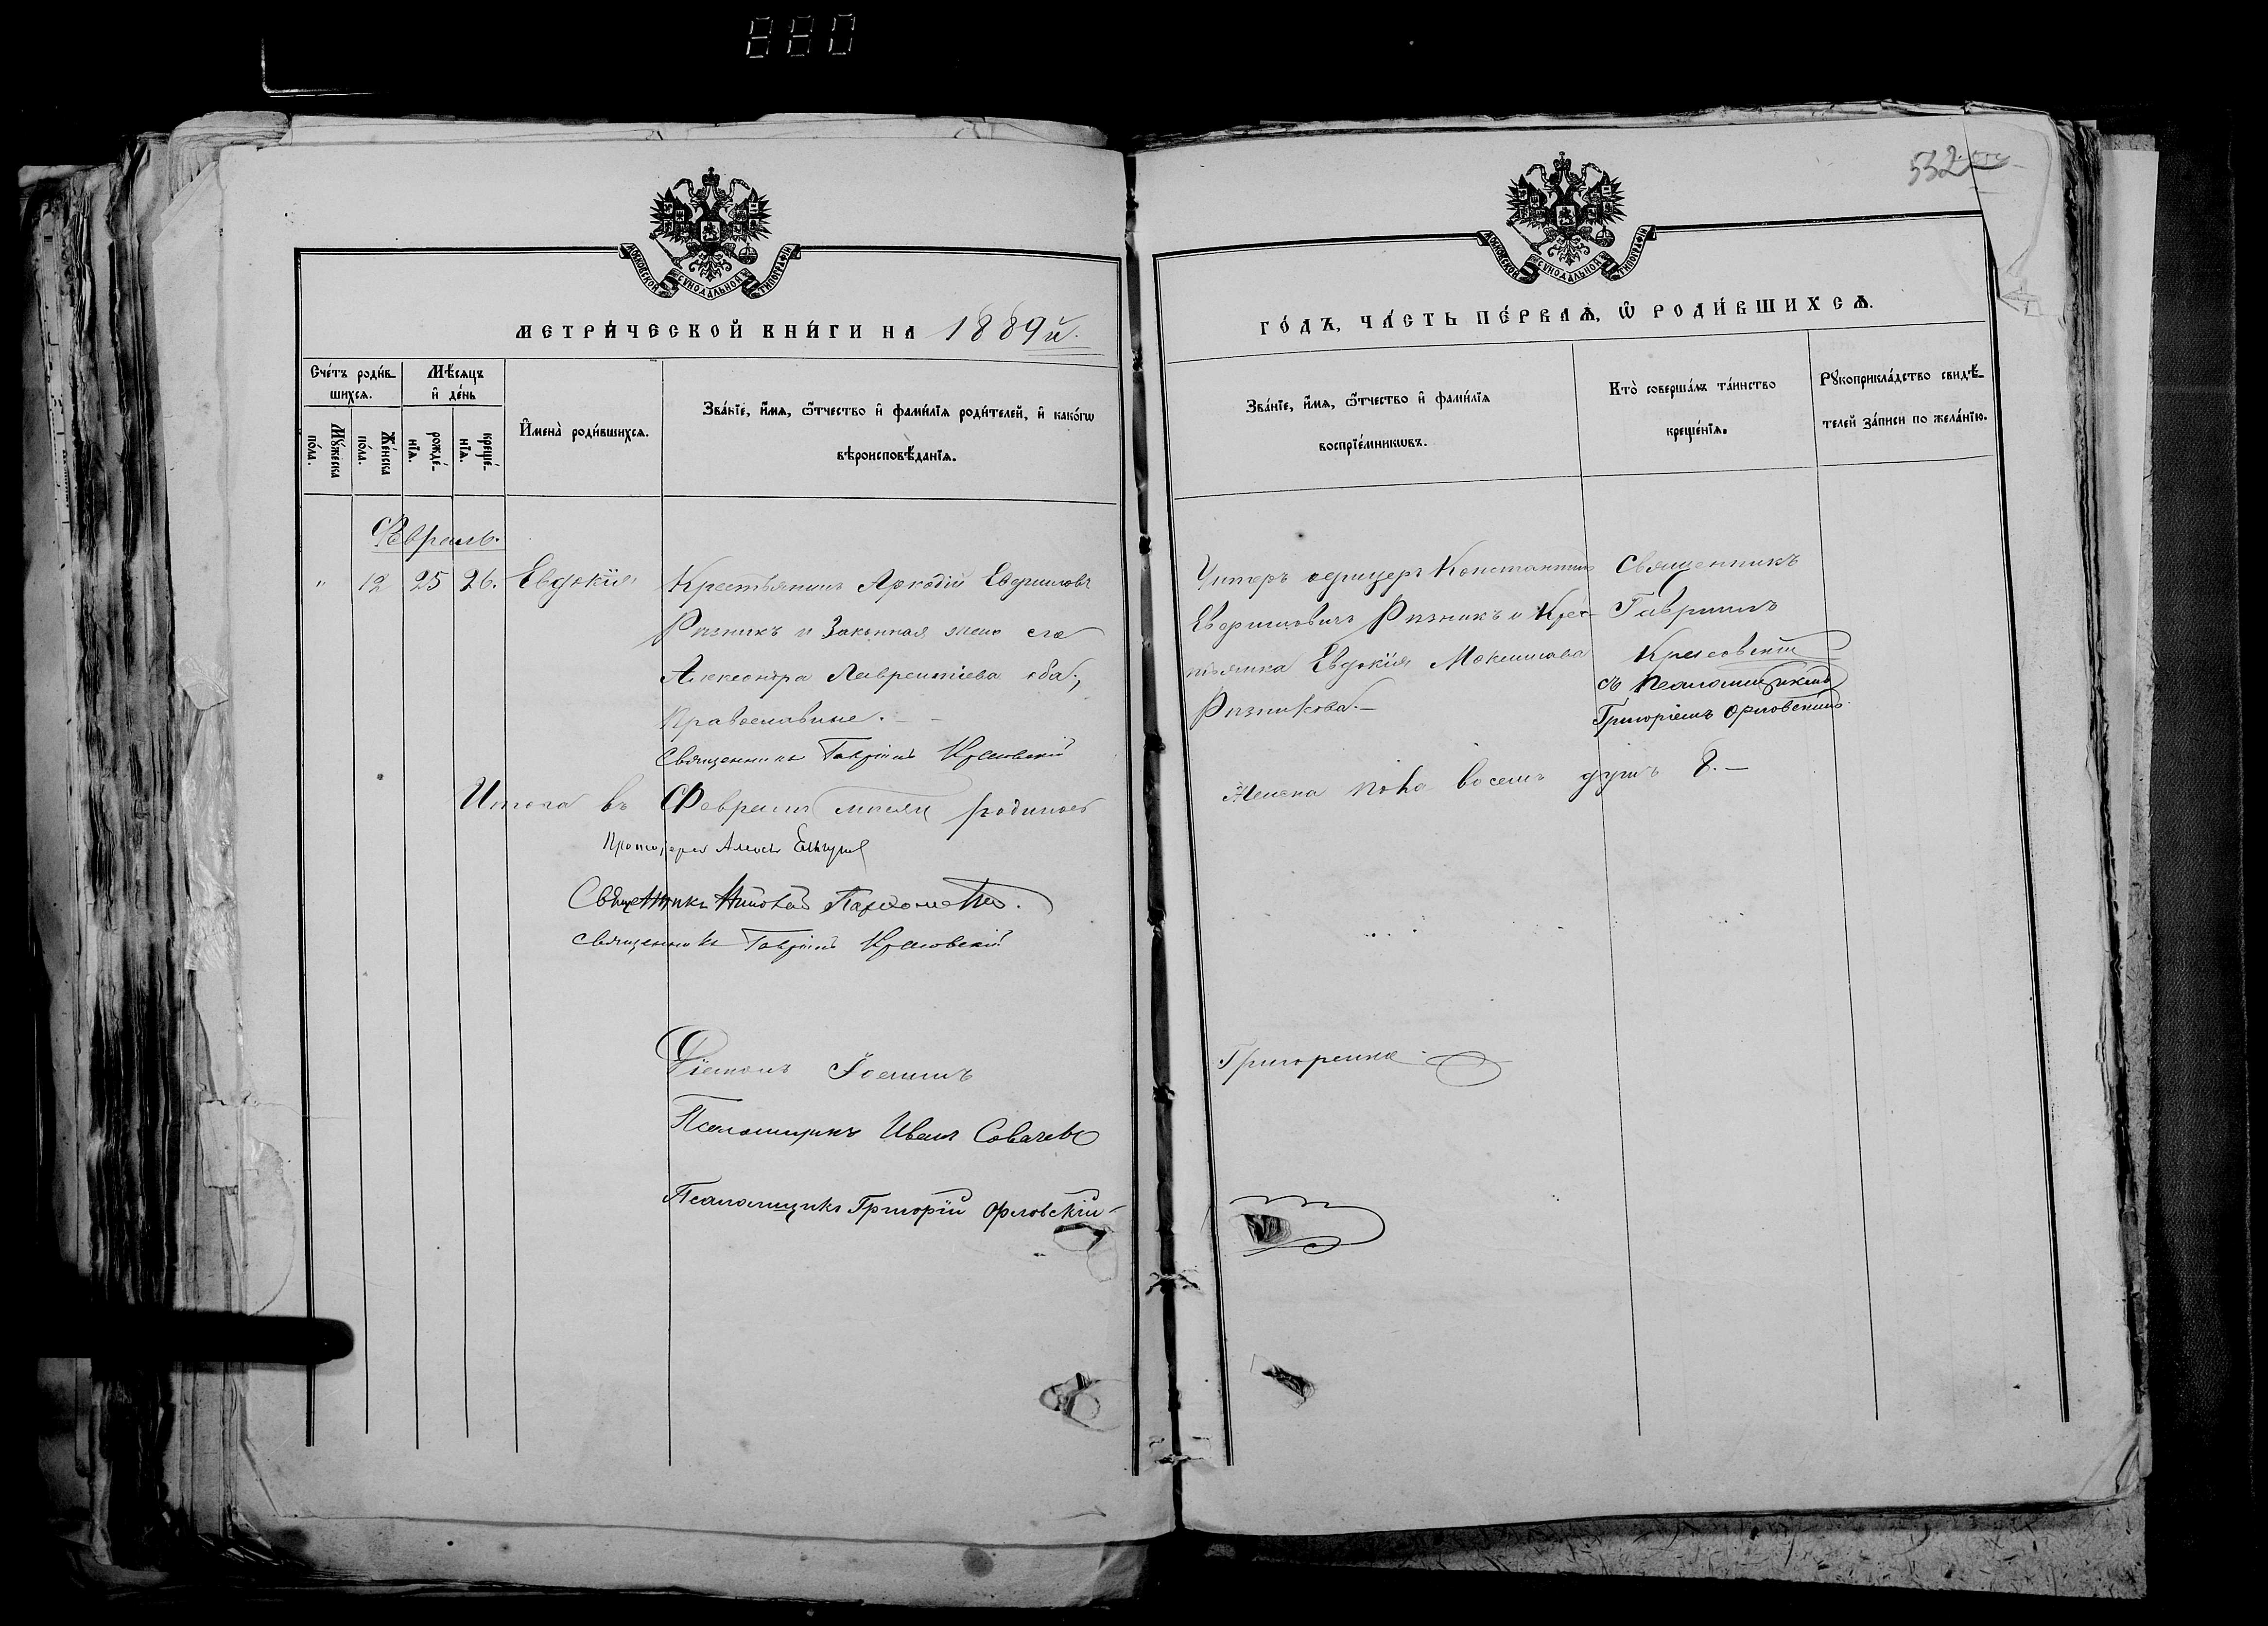 880
532
МОСКОВСКОЙ СУНОДАЛЬНОЙ ТИПОГРАФІИ
МОСКОВСКОЙ СУНОДАЛЬНОЙ ТИПОГРАФІИ
МЕТРИ́ЧЕСКОЙ КНИ́ГИ НА 1889й.
ГО́ДЪ, ЧА́СТЬ ПЕ́РВАѦ, Ѡ҆ РОДИ́ВШИХСѦ.
Сче́тъ роди́в-
шихсѧ.
Мѣ́сѧцъ
и҆ де́нь
Мꙋ́жеска
по́ла.
Же́нска
по́ла.
рожде́-
нїѧ.
креще́-
нїѧ.
И҆мена̀ роди́вшихсѧ.
Зва́нїе, и҆́мѧ, ѻ҆́тчество и҆ фами́лїѧ роди́телей, и҆ како́гѡ
вѣроисповѣ́данїѧ.
Зва́нїе, и҆́мѧ, ѻ҆́тчество и҆ фами́лїѧ
воспрїе́мникѡвъ.
Кто̀ соверша́лъ та́инство
креще́нїѧ.
Рꙋкоприкла́дство свидѣ́-
телей за́писи по жела́нїю.
Февраль.
" 12 25 26. Евдокія Крестьянинъ Аркадій Евфимовъ
Ризникъ и Законная жена его
Александра Лаврентіева оба
православные.
Священникъ Гавріилъ
Унтеръ офицеръ Константинъ
Евфимовичъ Ризникъ и Крес-
тьянка Евдокія Максимова
Ризникова.
Священникъ
Гавріилъ
съ псаломщикомъ
Григоріемъ Орловскимъ.
Итого въ Февралѣ мѣсяцѣ родилось
Женска пола восемь душъ 8.
Протоіерей Алексѣй
Священникъ Николай
Священникъ Гавріилъ
Діаконъ Іосифъ Григоренко
Псаломщикъ Иванъ
Псаломщикъ Григорій Орловскій